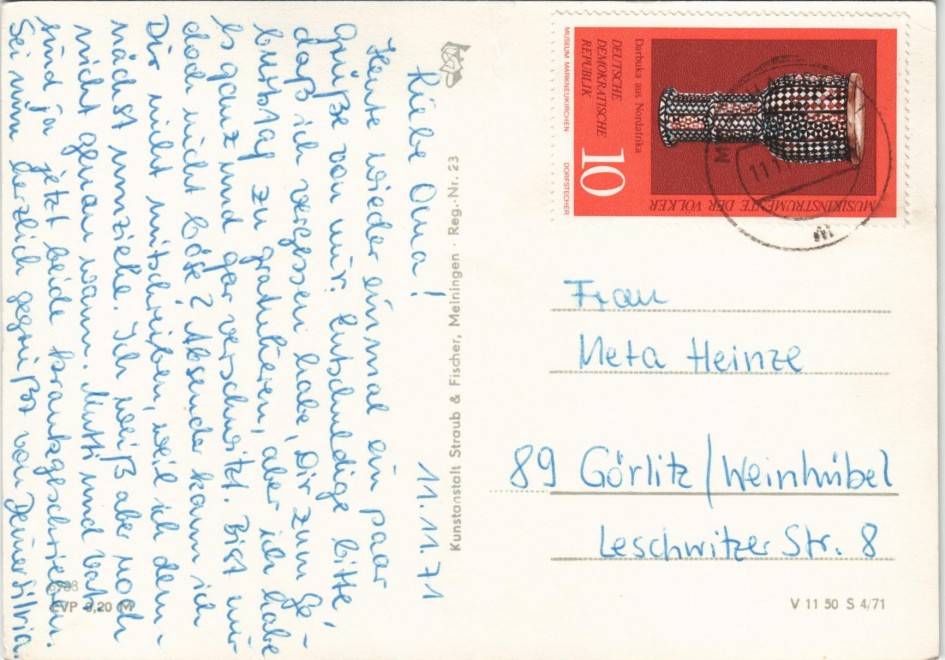 11.11.71
Liebe Oma!
Heute wieder einmal ein paar
Grüße von mir. Entschuldige bitte,
daß ich vergessen habe, Dir zum Ge-
burtstag zu gratulieren, aber ich habe
es ganz und gar verschwitzt. Bist mir
doch nicht böse? Absender kann ich
Dir nicht mitschreiben, weil ich dem-
nächst umziehe. Ich weiß aber noch
nicht genau wann. Mutti und Vati
sind ja jetzt beide krankgeschrieben.
Sei nun herzlich gegrüßt von Deiner Silvia.
6988
EVP 0,20 M
Kunstanstalt Straub & Fischer, Meiningen · Reg.-Nr. 23
MUSEUM MARKNEUKIRCHEN
DORFSTECHER
DEUTSCHE
DEMOKRATISCHE
REPUBLIK
Darbuka aus Nordafrika
10
MUSIKINSTRUMENTE DER VÖLKER
Frau
Meta Heinze
89 Görlitz/Weinhübel
Leschwitzer Str. 8
V 11 50 S 4/71